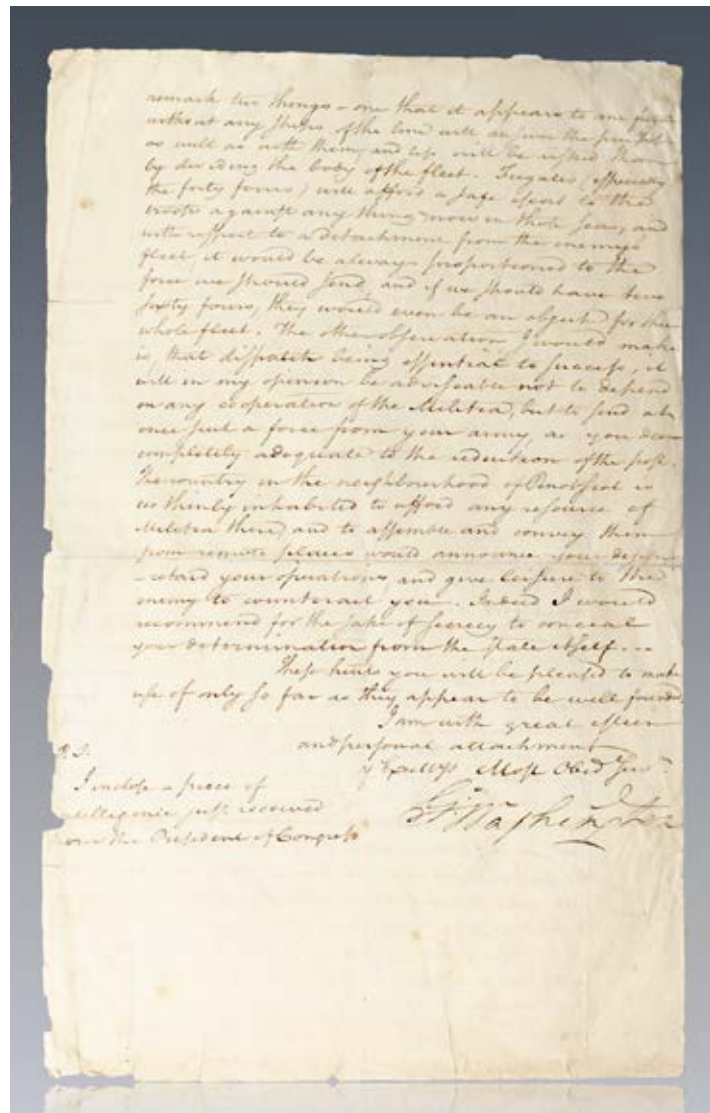 remark two things – one that it appears to me frigates
without any Ships of the line will answer the purpose
as well as with them, and less will be risked than
by dividing the body of the fleet. Frigates (especially
the forty fours) will afford a safe escort to the
troops against any thing now in those seas, and
with respect to a detachment from the enemys
fleet, it would be always proportioned to the
force we should send, and if we should have two
sixty fours, they would even be an object for their
whole fleet. The other observation I would make
is, that dispatch being essential to success, it
will in my opinion be adviseable not to depend
on any cooperation of the Militia, but to send at
once such a force from your army, as you deem
completely adequate to the reduction of the post.
The country in the neighbourhood of Penobscot is
too thinly inhabited to afford any resource of
Militia there, and to assemble and convey them
from remote places would announce your design
– retard your operations, and give leisure to the
enemy to counteract you. Indeed I would
recommend for the sake of secrecy to conceal
your determination from the state itself...
These hints you will be pleased to make
use of only so far as they appear to be well founded
I am with great esteem
and personal attachment
yr Excellys Most Obed Serv
Go: Washington
P.S.
I inclose a piece of
intelligence just received
from the President of Congress